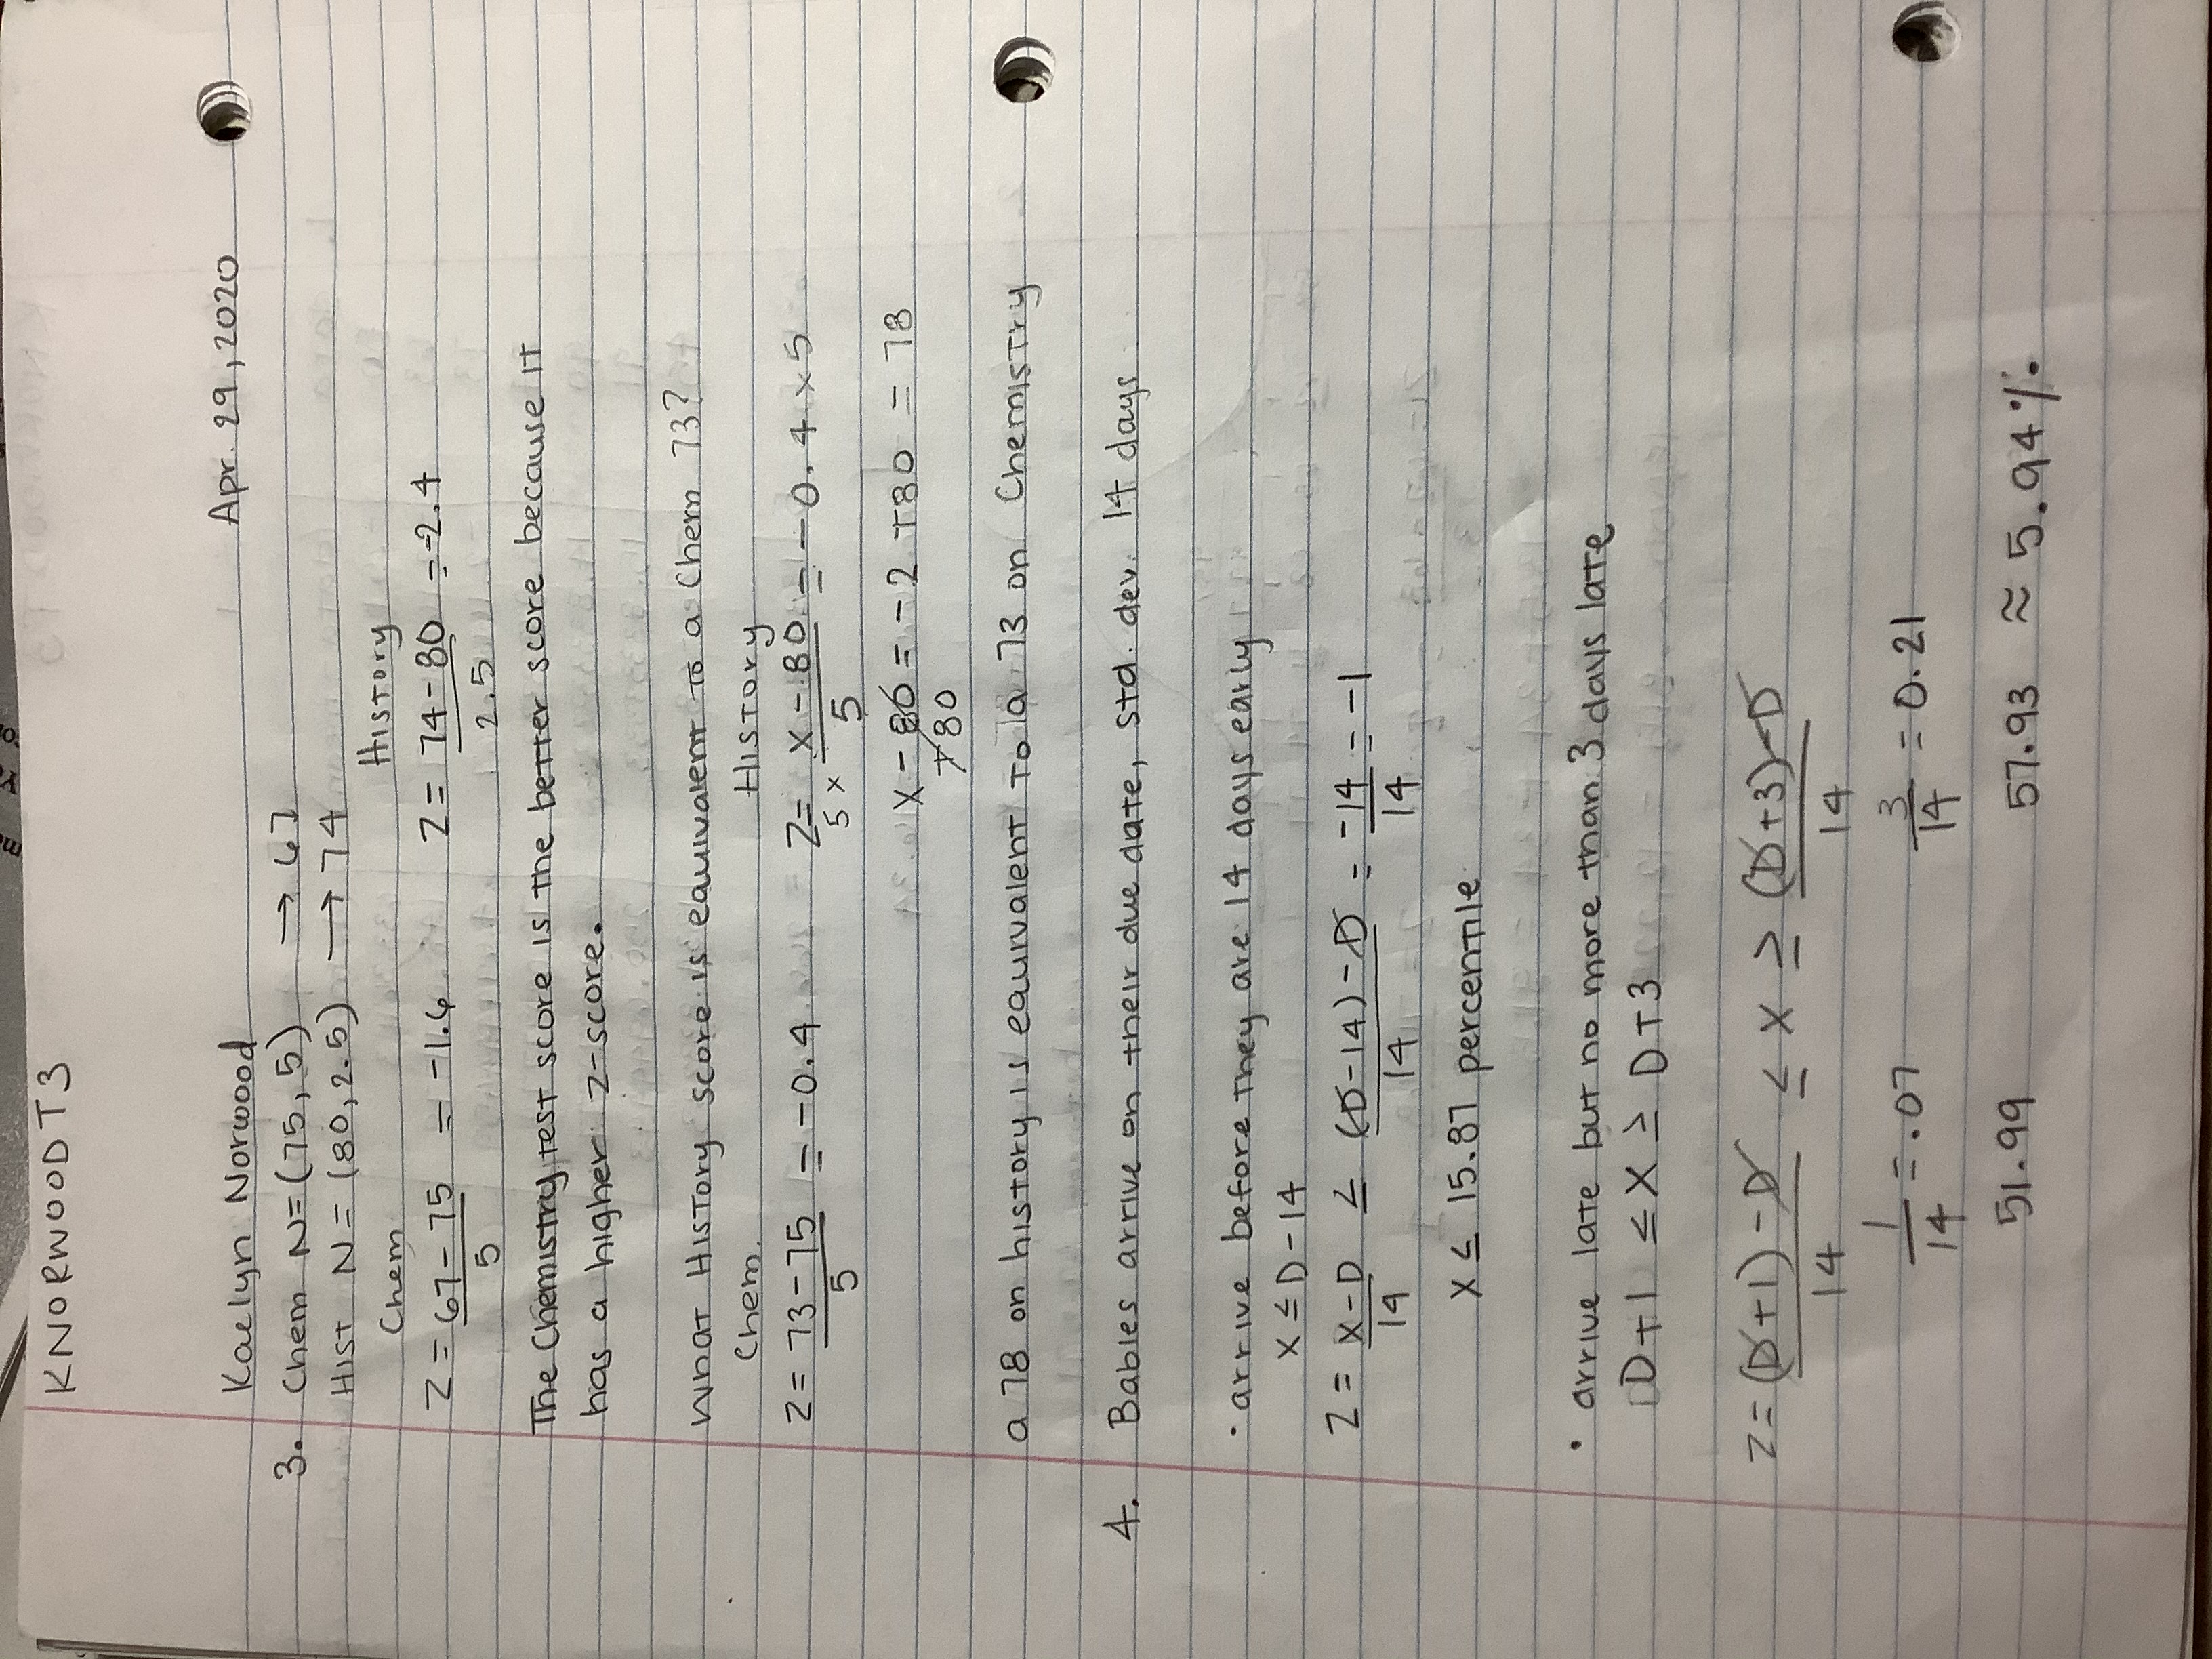 KNORWOODT3
Kaelyn Norwood Apr. 29, 2020
3. Chem N=(75,5) → 67
Hist N=(80,2.5) → 74
Chem History
Z = 67-75 / 5 = -1.6 Z = 74-80 / 2.5 = -2.4
The Chemistry test score is the better score because it
has a higher z-score.
What History score is equivalent to a Chem 73?
Chem. History
Z = 73-75 / 5 = -0.4 Z = 5 × x-80 / 5 = -0.4 × 5
x - 80 = -2 +80 = 78
+80
a 78 on history is equivalent to a 73 on Chemistry
4. Babies arrive on their due date, std. dev. 14 days
• arrive before they are 14 days early
x ≤ D-14
Z = x-D / 14 ≤ (D-14)-D / 14 = -14 / 14 = -1
x ≤ 15.87 percentile
• arrive late but no more than 3 days late
D+1 ≤ x ≥ D+3
Z = (D+1)-D / 14 ≤ x ≥ (D+3)-D / 14
1/14 = .07 3/14 = 0.21
51.99 57.93 ≈ 5.94%